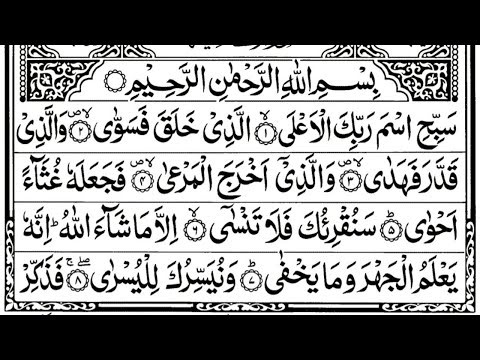 بِسْمِ اللهِ الرَّحْمٰنِ الرَّحِيْمِ ۝
سَبِّحِ اسْمَ رَبِّكَ الْاَعْلَى ۙ﴿۱﴾ الَّذِیْ خَلَقَ فَسَوّٰی ۪ۙ﴿۲﴾ وَالَّذِیْ
قَدَّرَ فَهَدٰی ۪ۙ﴿۳﴾ وَالَّذِیْۤ اَخْرَجَ الْمَرْعٰی ۪ۙ﴿۴﴾ فَجَعَلَهٗ غُثَآءً
اَحْوٰی ؕ﴿۵﴾ سَنُقْرِئُكَ فَلَا تَنْسٰۤی ۙ﴿۶﴾ اِلَّا مَا شَآءَ اللهُ ؕ اِنَّهٗ
یَعْلَمُ الْجَهْرَ وَمَا یَخْفٰی ؕ﴿۷﴾ وَنُیَسِّرُكَ لِلْیُسْرٰی ۚۖ﴿۸﴾ فَذَكِّرْ